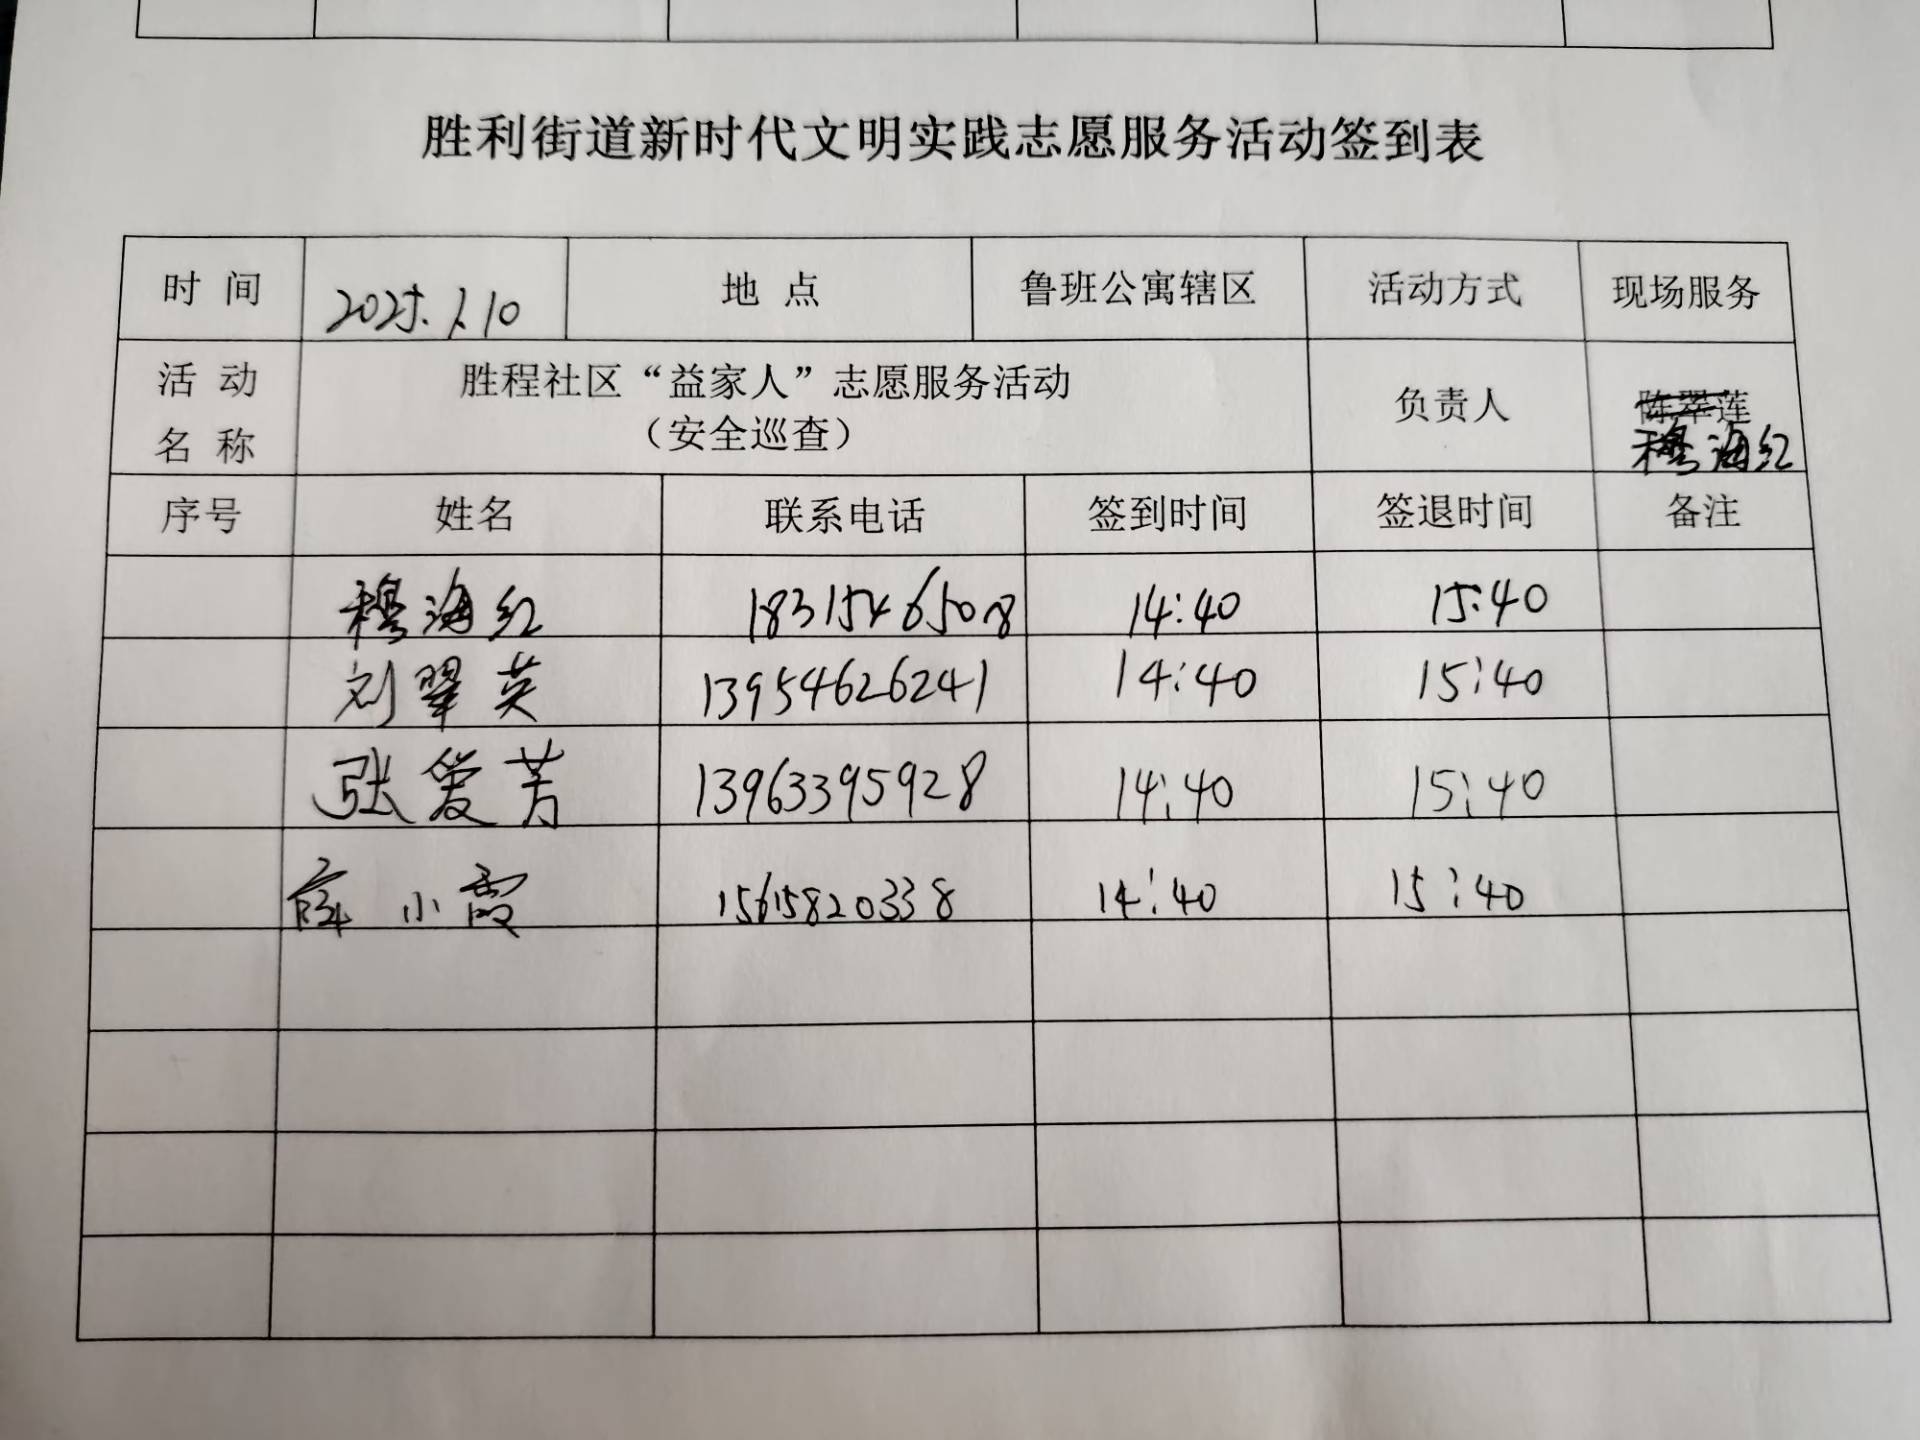 胜利街道新时代文明实践志愿服务活动签到表
时 间 2025.1.10 地 点 鲁班公寓辖区 活动方式 现场服务
活 动 名 称 胜程社区“益家人”志愿服务活动 负责人 陈翠莲
（安全巡查） 穆海红
序号 姓名 联系电话 签到时间 签退时间 备注
穆海红 18315465018 14:40 15:40
刘翠英 13954626241 14:40 15:40
张爱芳 13963395928 14:40 15:40
薛小霞 15615820338 14:40 15:40